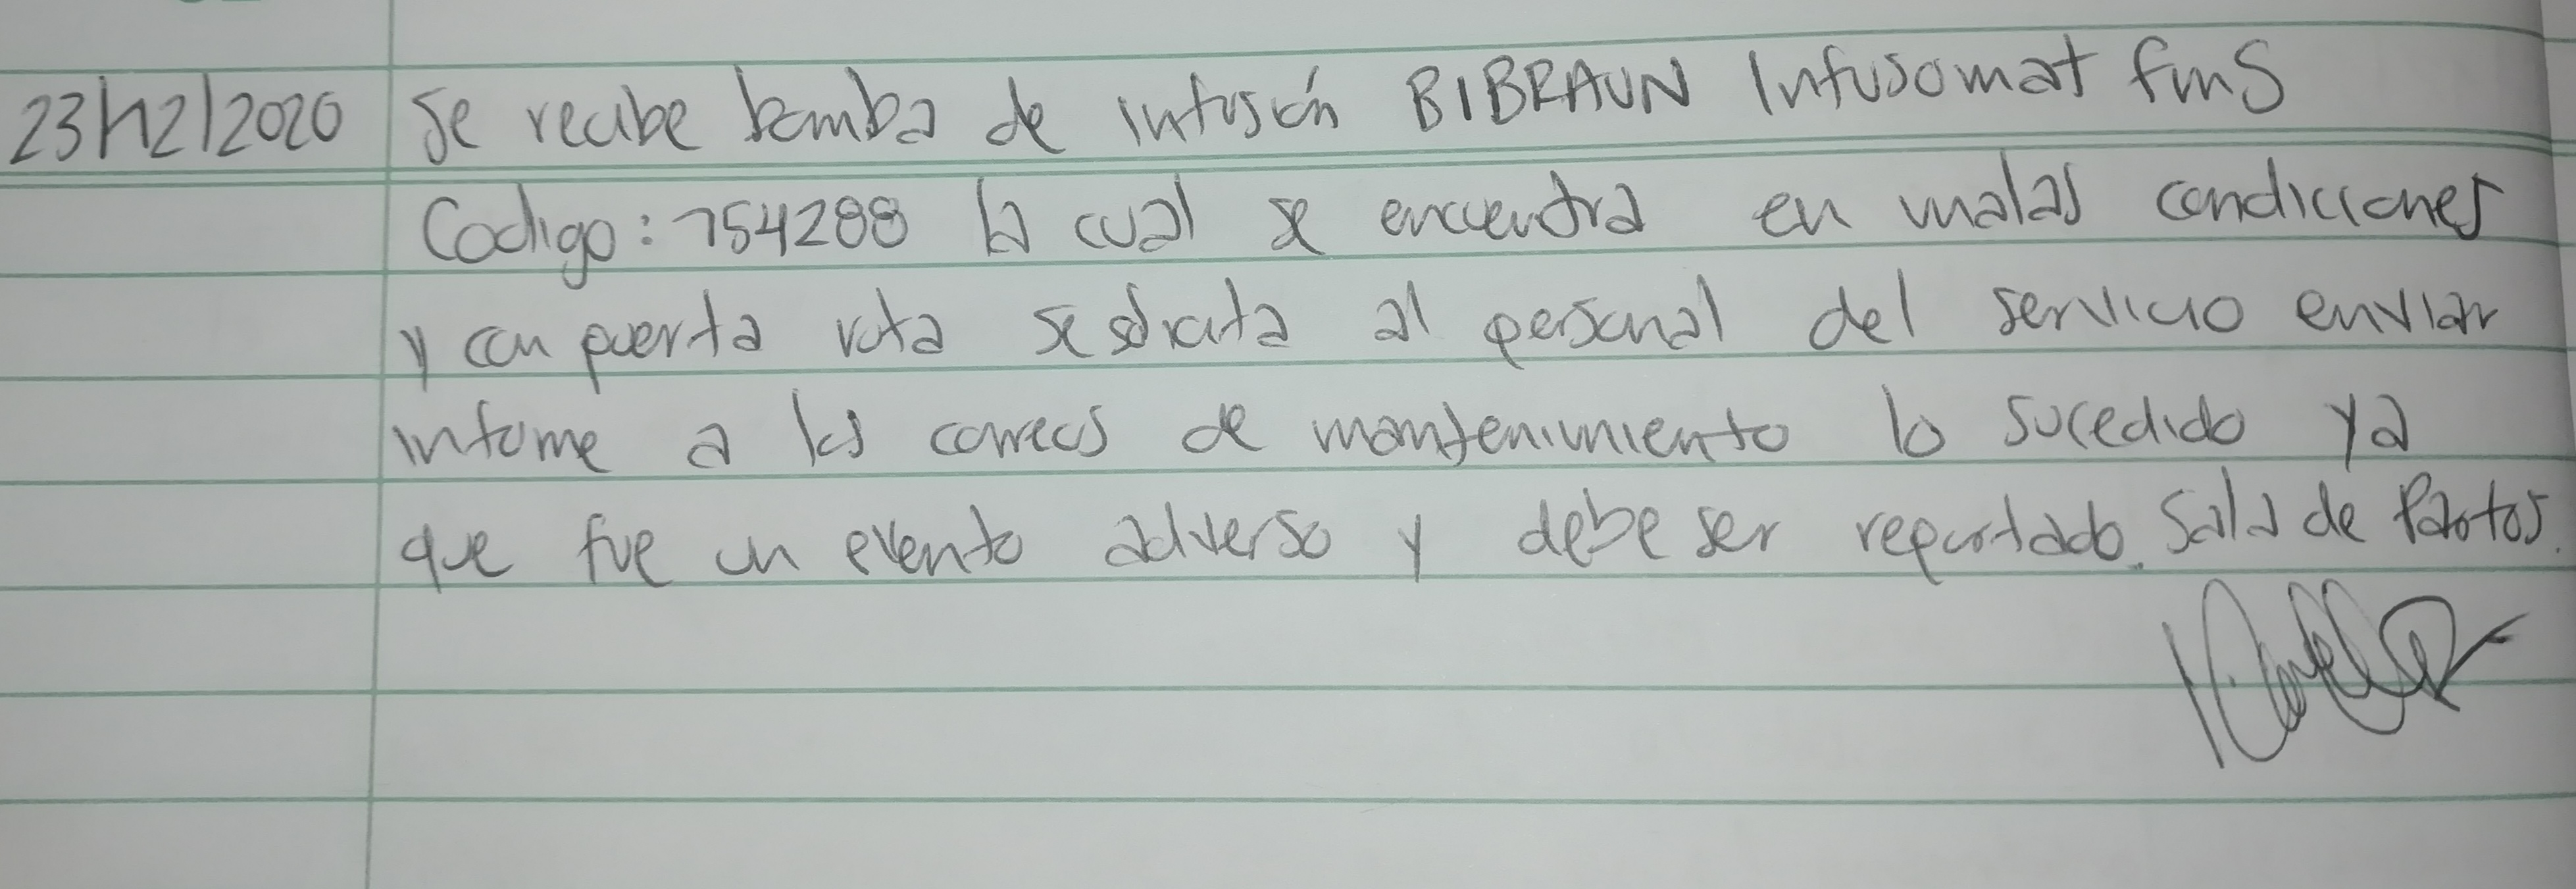 23/12/2020 Se recibe bomba de infusión BIBRAUN Infusomat fmS
Codigo: 754288 la cual se encuentra en malas condiciones
y con puerta rota se solicita al personal del servicio enviar
informe a los correos de mantenimiento lo sucedido ya
que fue un evento adverso y debe ser reportado. Sala de Partos.